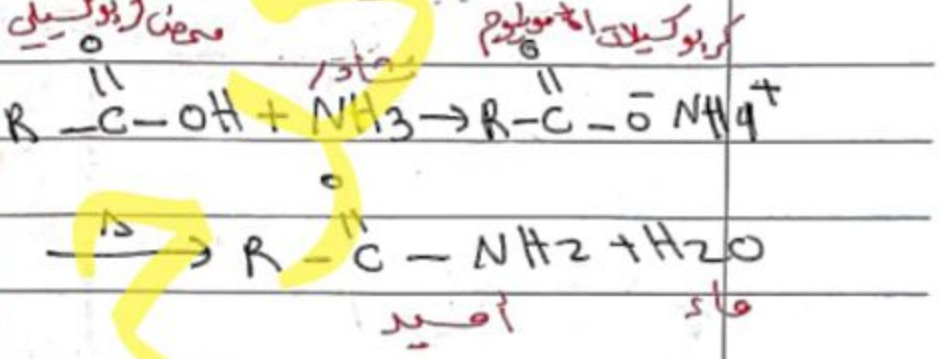 حمض كربوكسيلي نشادر كربوكسيلات الأمونيوم
O O
|| ||
R - C - OH + NH3 → R - C - O⁻ NH4⁺
O
Δ ||
→ R - C - NH2 + H2O
أميد ماء